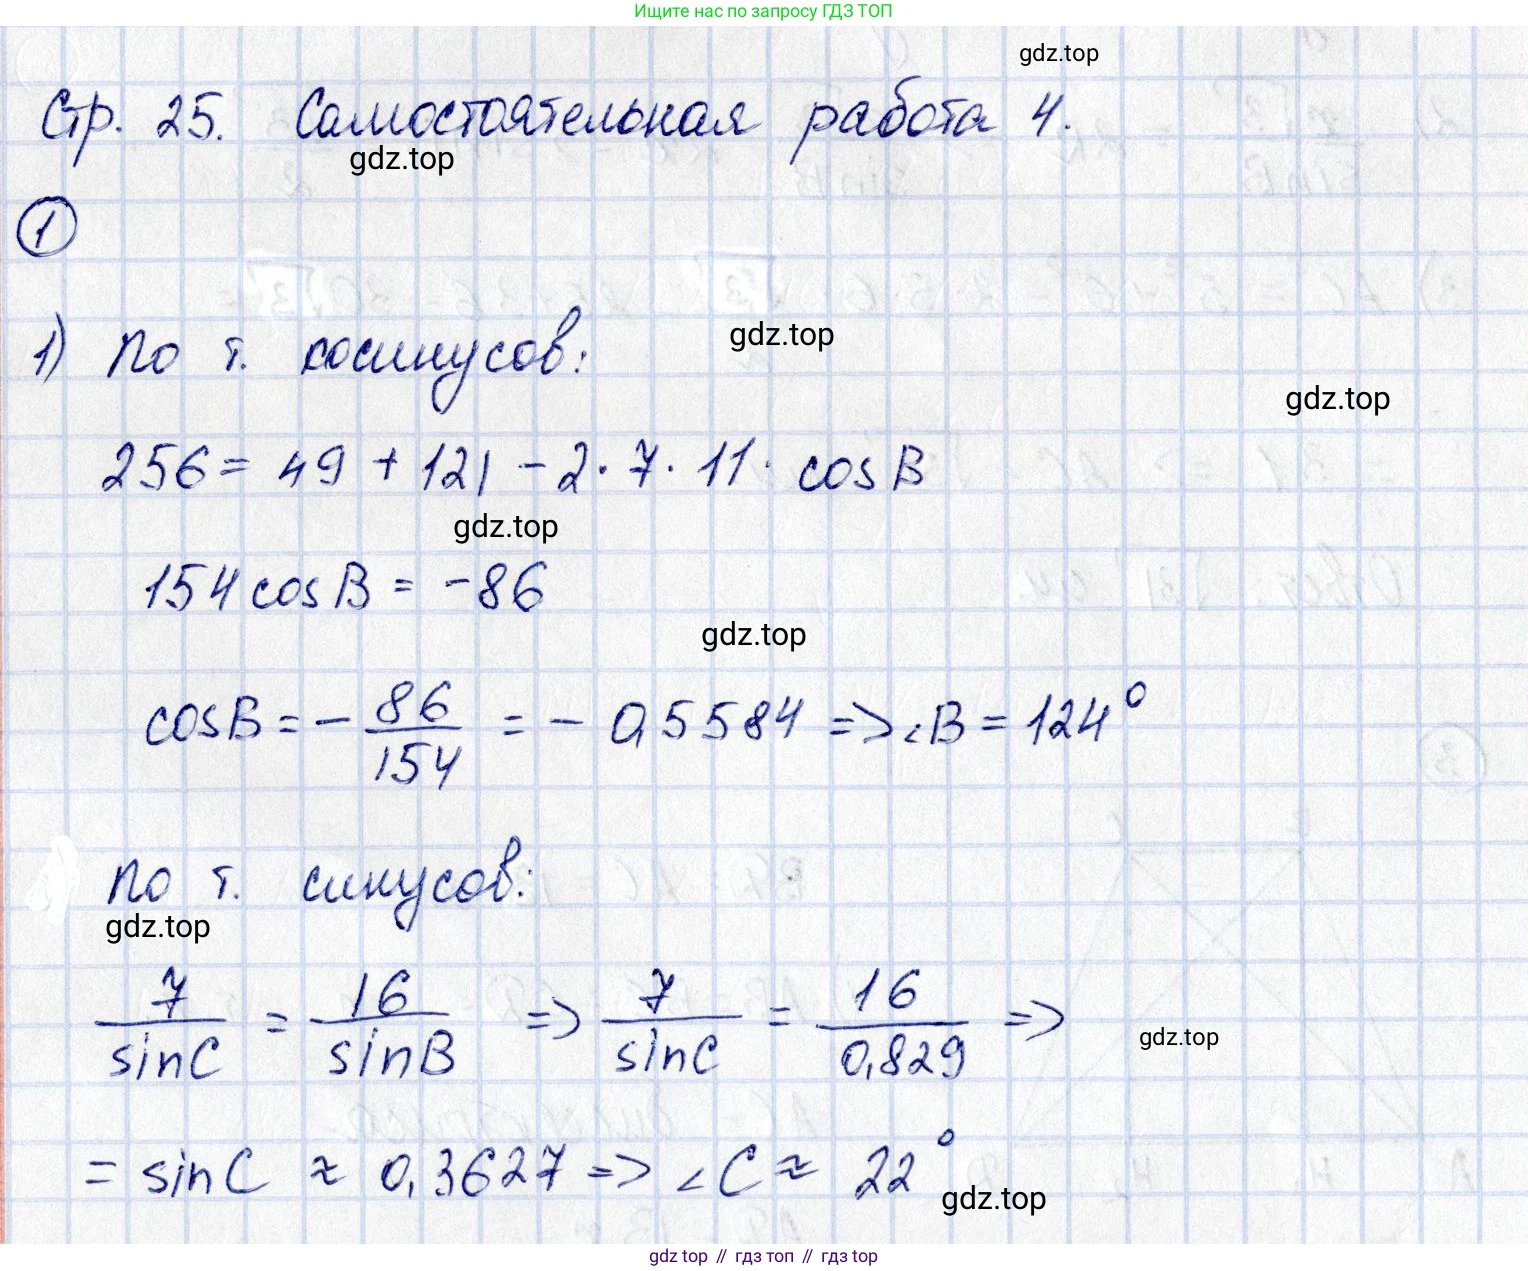 Ищите нас по запросу ГДЗ ТОП
gdz.top
Стр. 25. Самостоятельная работа 4.
gdz.top
1
1) По т. косинусов:
gdz.top
gdz.top
256 = 49 + 121 - 2 · 7 · 11 · cos B
gdz.top
154 cos B = -86
gdz.top
cos B = - 86/154 = - 0,5584 => ∠B = 124°
По т. синусов:
gdz.top
7/sin C = 16/sin B => 7/sin C = 16/0,829 =>
gdz.top
= sin C ≈ 0,3627 => ∠C ≈ 22°
gdz.top
gdz top // гдз топ // гдз top